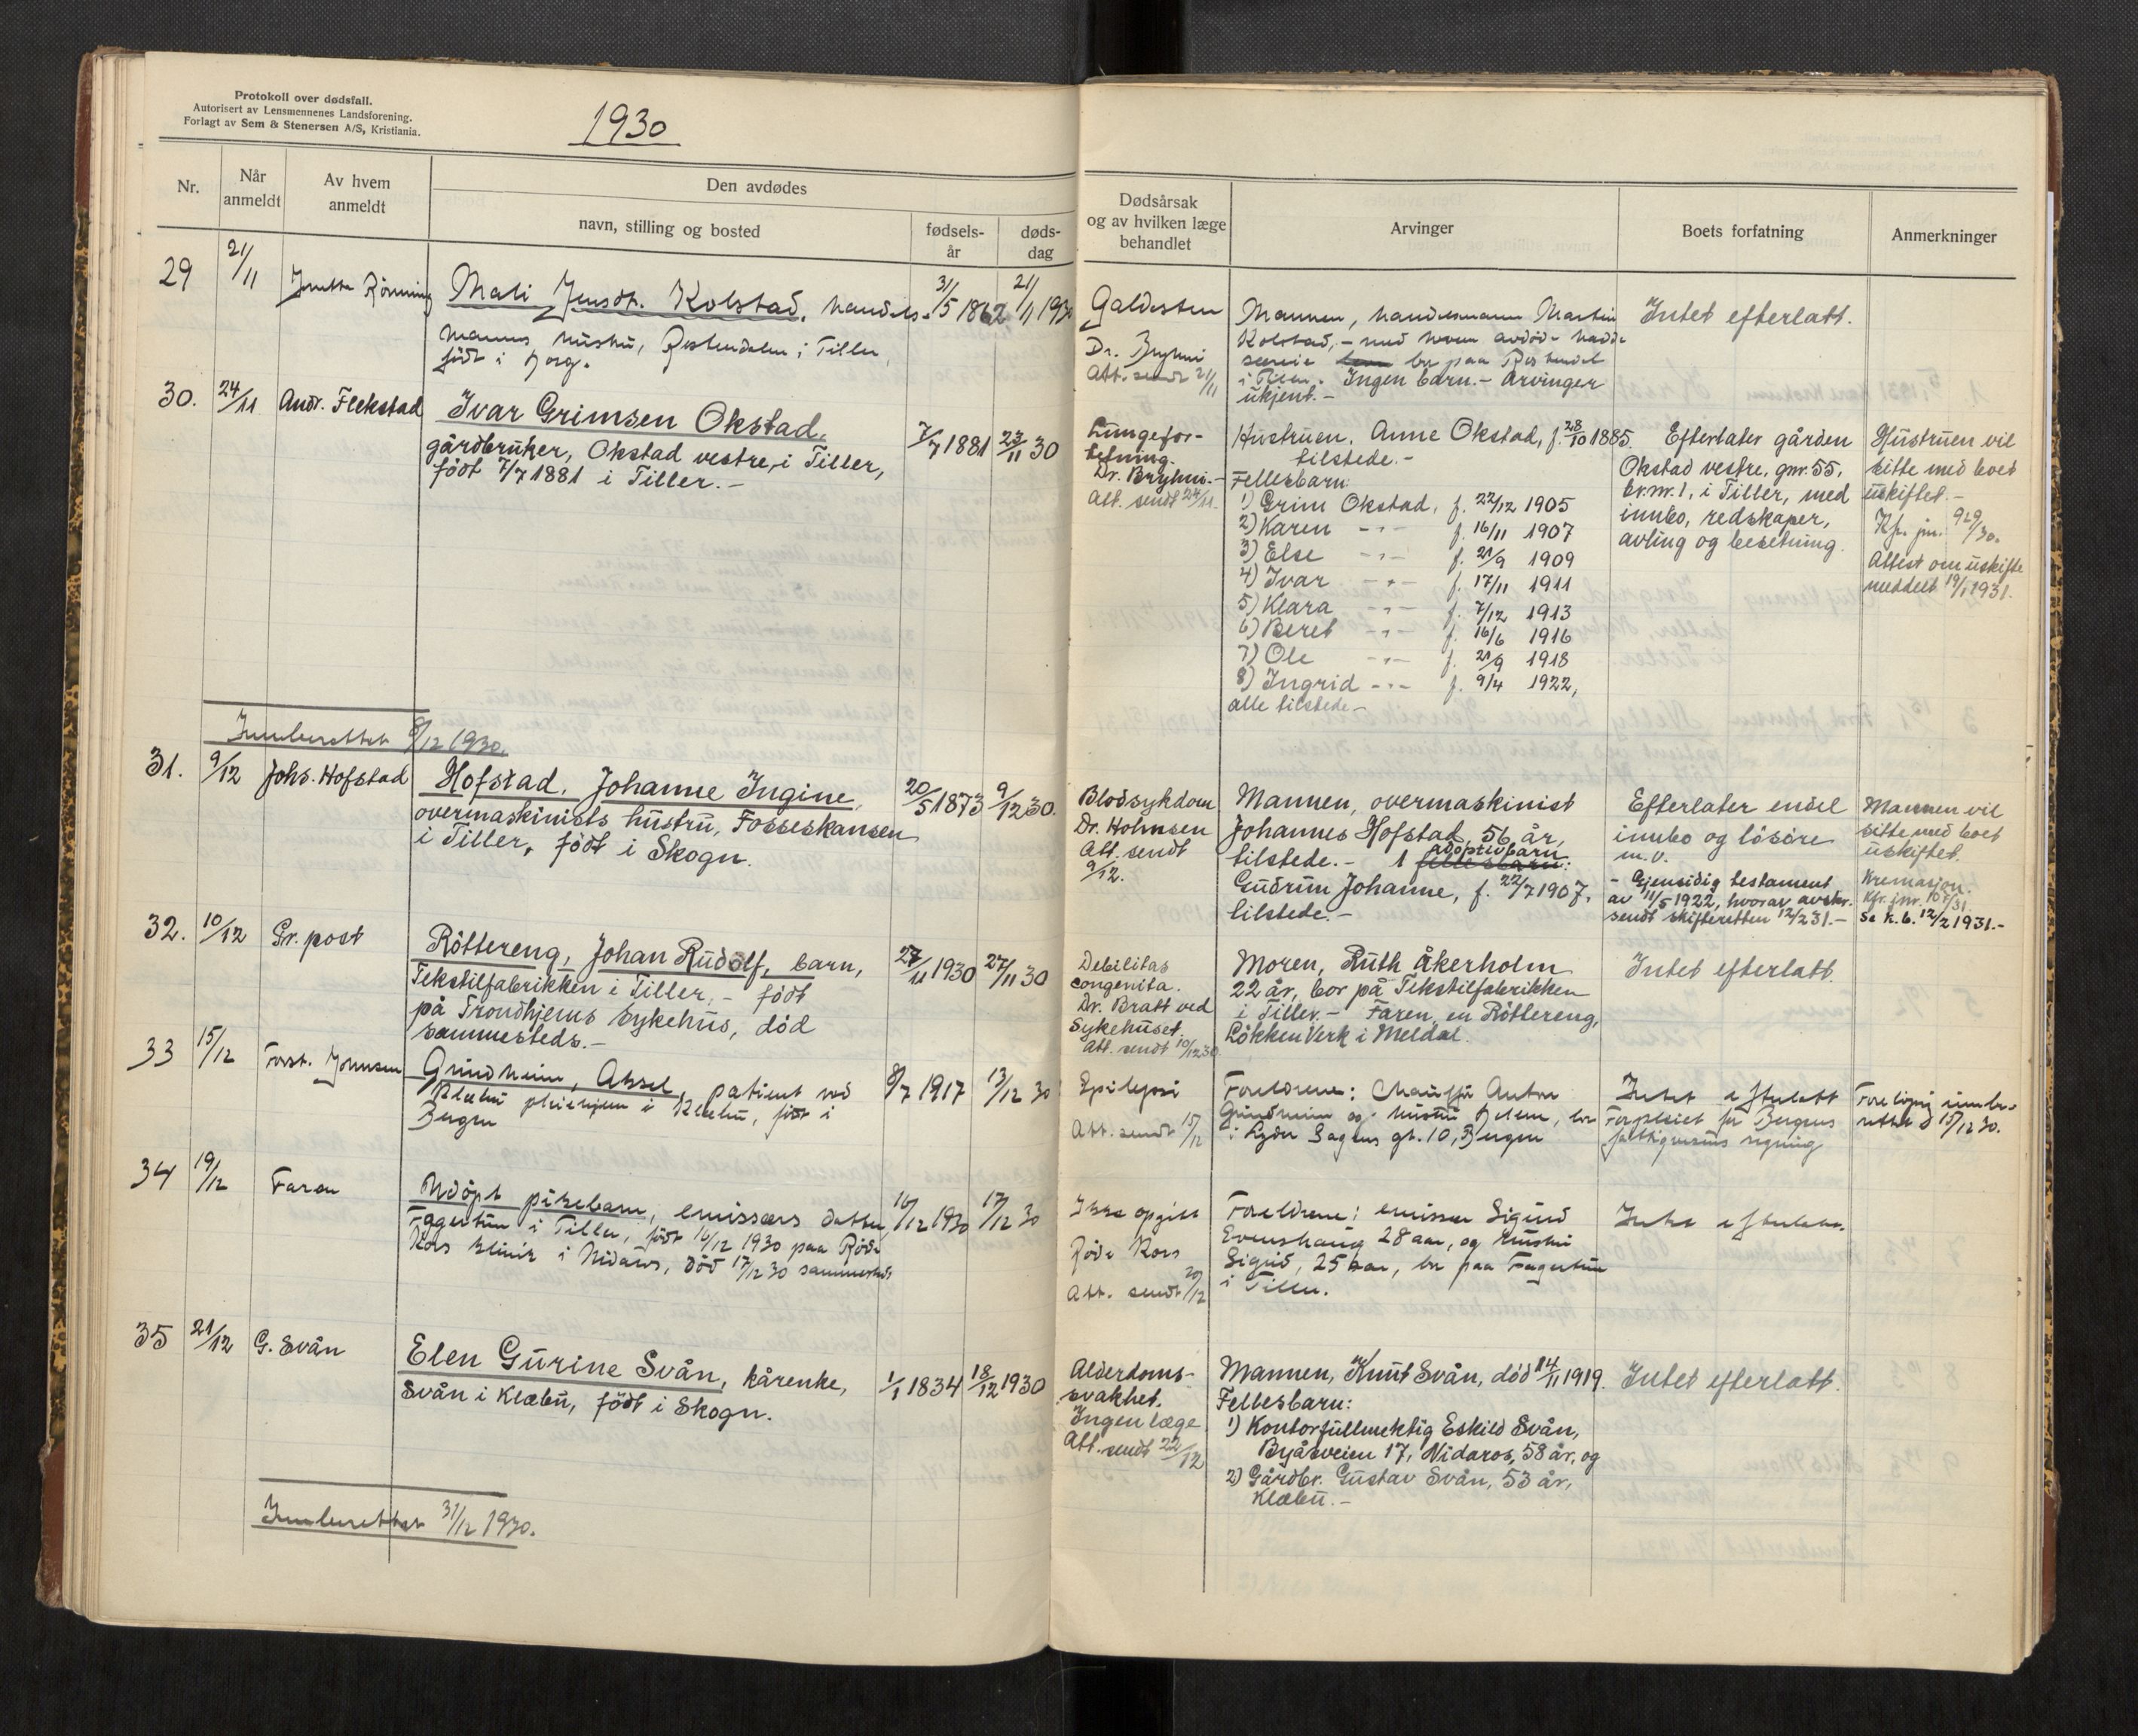 Protokoll over dødsfall.
Autorisert av Lensmennenes Landsforening.
Forlagt av Sem & Stenersen A/S, Kristiania.
1930
Nr.
Når anmeldt
Av hvem anmeldt
Den avdødes
navn, stilling og bosted
fødsels-år
døds-dag
Dødsårsak og av hvilken læge behandlet
Arvinger
Boets forfatning
Anmerkninger
29
21/11
Rönning
Mali Jensdt. Kolstad, handels-
manns hustru, i Tiller
födt i Horg.
31/5 1862
21/11 1930
Galdesten
Dr. Bryhni
Att. sendt 21/11
Mannen, handelsmann Martin
Kolstad, – med hvem avdöde hadde
særeie bor paa
i Tiller. Ingen barn. – Arvinger
ukjent. –
Intet efterlatt.
30.
24/11
Andr. Flekstad
Ivar Grimsen Okstad,
gårdbruker, Okstad vestre, i Tiller,
födt 7/7 1881 i Tiller. –
7/7 1881
23/11 30
Lungefor-
tetning.
Dr. Bryhni. –
Att. sendt 24/11.
Hustruen, Anne Okstad, f. 28/10 1885
tilstede. –
Fellesbarn:
1) Grim Okstad, f. 22/12 1905
2) Karen – " – f. 16/11 1907
3) Else – " – f. 21/9 1909
4) Ivar – " – f. 17/11 1911
5) Klara – " – f. 7/12 1913
6) Beret – " – f. 16/6 1916
7) Ole – " – f. 21/9 1918
8) Ingrid – " – f. 9/4 1922,
alle tilstede –
Efterlater gården
Okstad vestre, gnr. 55,
br.nr. 1, i Tiller, med
innbo, redskaper,
avling og besetning.
Hustruen vil
sitte med boet
uskiftet. –
Kfr. jnr. 929/30.
Attest om uskifte
meddelt 19/1 1931.
Innberettet 8/12 1930.
31.
9/12
Johs. Hofstad
Hofstad, Johanne Ingine,
overmaskinists hustru, Fosseskansen
i Tiller, födt i Skogn.
20/5 1873
9/12 30.
Blodsykdom
Dr. Holmsen
Att. sendt
9/12.
Mannen, overmaskinist
Johannes Hofstad, 56 år,
tilstede. – 1 fellesbarn: adoptivbarn
Gudrun Johanne, f. 22/7 1907,
tilstede. –
Efterlater endel
innbo og lösöre
m.v.
– Gjensidig testament
av 11/5 1922, hvorav avskr.
sendt skifteretten 12/2 31. –
Mannen vil
sitte med boet
uskiftet.
Kremasjon.
Se k.b. 12/2 1931. –
32.
10/12
Pr. post
Röttereng, Johan Rudolf, barn,
Tekstilfabrikken i Tiller, – födt
på Trondhjems Sykehus, död
sammesteds. –
27/11 1930
27/11 30
Debilitas
congenita.
Dr. Bratt ved
Sykehuset.
Att. sendt 10/12 30
Moren, Ruth Åkerholm
22 år, bor på Tekstilfabrikken
i Tiller. – Faren, en Röttereng,
Lökken Verk i Meldal.
Intet efterlatt.
33
15/12
Forst. Johnsen
Grindheim, Aksel, patient ved
Klæbu pleiehjem i Klæbu, födt i
Bergen
8/7 1917
13/12 30
Epilepsi
Att. sendt 15/12
Foreldrene: Chauffør Anton
Grindheim og hustru Helene, bor
i Lyder Sagens gt. 10, Bergen
Intet efterlatt
Forpleiet for Bergens
fattigvesens regning
Forelöpig innbe-
rettet d 15/12 30.
34
19/12
Faren
Udöpt pikebarn, emissærs datter
Fagertun i Tiller, födt 16/12 1930 paa Röde
Kors klinik i Nidaros, död 17/12 30 sammesteds
16/12 1930
17/12 30
Ikke opgitt
Röde Kors
Att. sendt 20/12
Foreldrene: emissær Sigurd
Evenshaug 28 aar, og hustru
Sigrid, 25 aar, bor paa Fagertun
i Tiller.
Intet efterlatt.
35
21/12
G. Svån
Elen Gurine Svån, kårenke,
Svån i Klæbu, födt i Skogn.
1/1 1834
18/12 1930
Alderdoms-
svakhet.
Ingen læge
Att. sendt 22/12
Mannen, Knut Svån, död 14/11 1919.
Fellesbarn:
1) Kontorfullmektig Eskild Svån,
Byåsveien 17, Nidaros, 58 år, og
2) Gårdbr. Gustav Svån, 53 år,
Klæbu. –
Intet efterlatt.
Innberettet 31/12 1930.